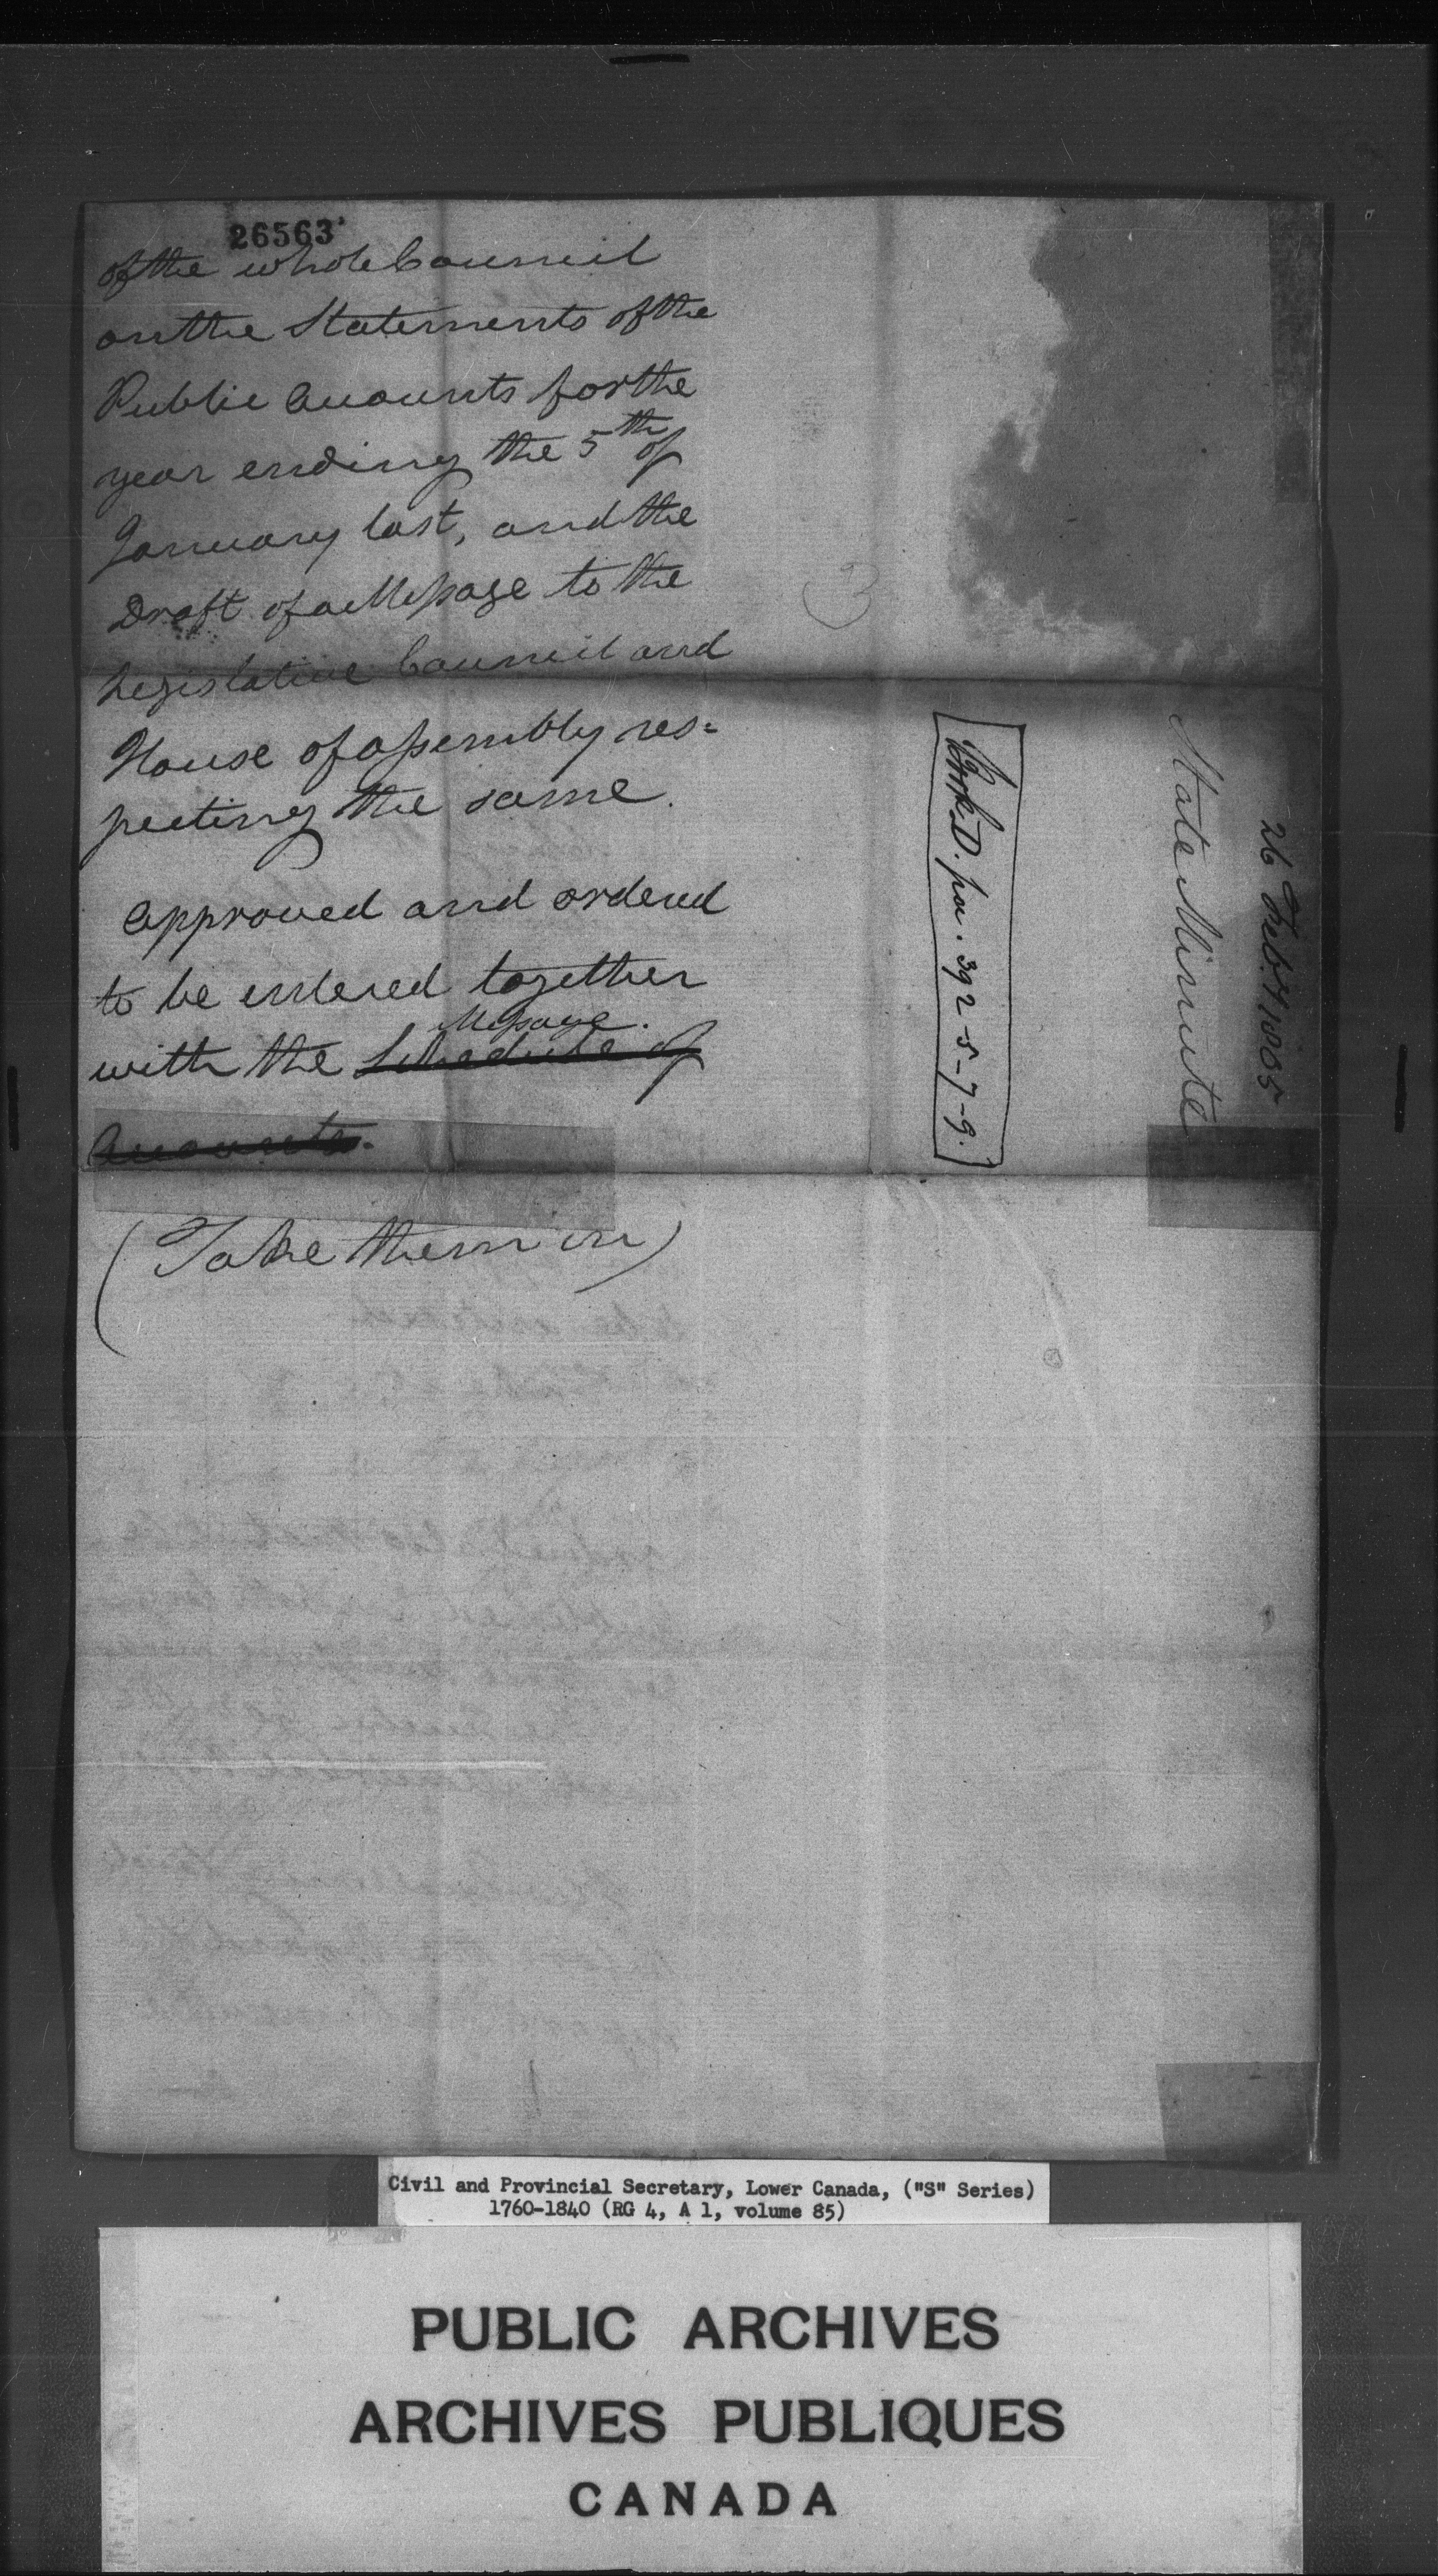 26563
of the whole Council
on the Statements of the
Public Accounts for the
year ending the 5th of
January last, and the
Draft of a Message to the
Legislative Council and
House of assembly res=
pecting the same.
approved and ordered
to be entered together
Message.
with the Schedule of
Accounts.
(Take them in)
3
Book D. pa. 392-5-7-9.
State Minute
26 Feby 1805
Civil and Provincial Secretary, Lower Canada, ("S" Series)
1760-1840 (RG 4, A 1, volume 85)
PUBLIC ARCHIVES
ARCHIVES PUBLIQUES
CANADA